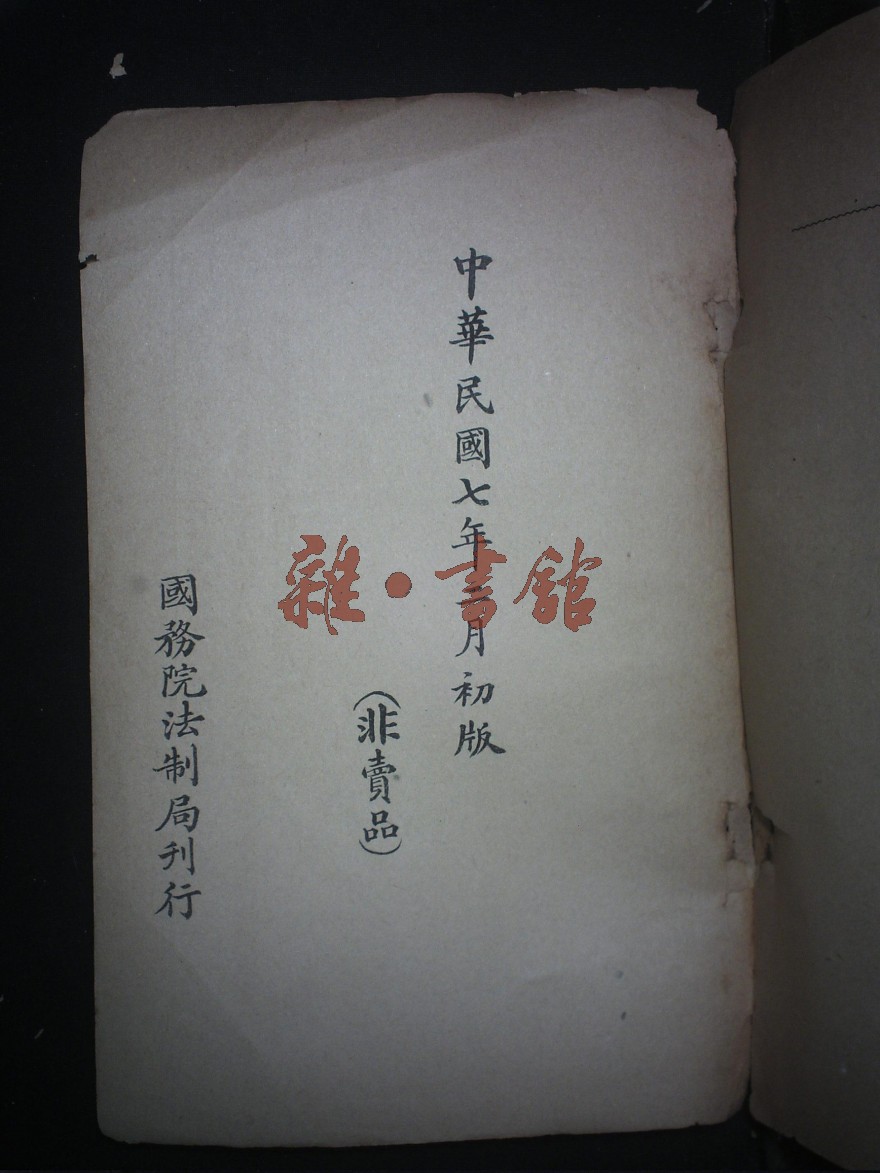 中華民國七年月初版
(非賣品)
國務院法制局刊行
雜·書館